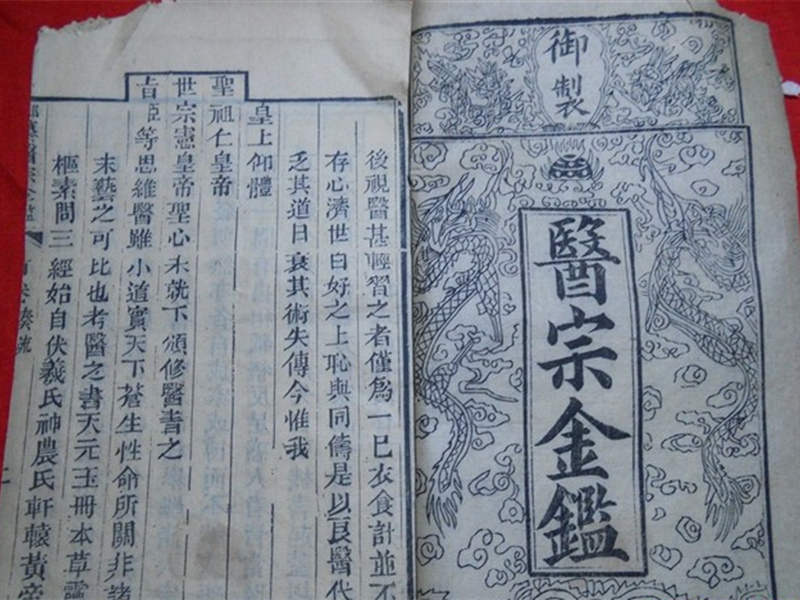 御製
醫宗金鑑
後視醫甚輕習之者僅為一已衣食計並不
存心濟世自好之上恥與同儔是以良醫代
乏其道日衰其術失傳今惟我
皇上仰體
聖祖仁皇帝
世宗憲皇帝聖心未就下頒修醫書之
旨臣等思維醫雖小道實天下蒼生性命所關非諸
末藝之可比也考醫之書天元玉冊本草靈
樞素問三經始自伏羲氏神農氏軒轅黃帝
卷奏疏
二